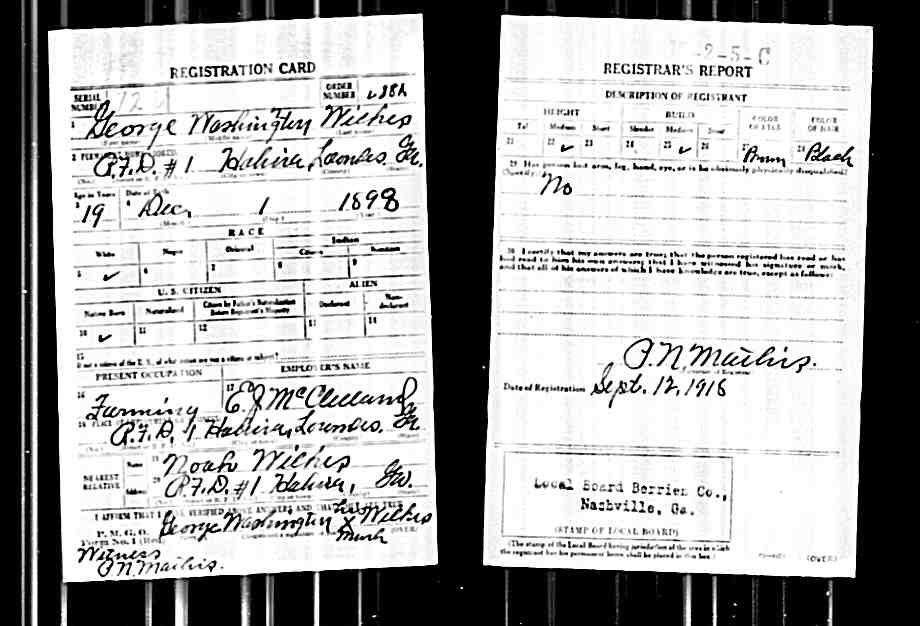 REGISTRATION CARD
SERIAL NUMBER
ORDER NUMBER
1 George Washington Wilkes
(First name) (Middle name) (Last name)
2 PERMANENT HOME ADDRESS:
R.F.D. #1 Hahira, Lowndes, Ga.
(No.) (City or town) (County) (State)
Age in Years Date of Birth
3 19 4 Dec, 1 1898
(Month) (Day) (Year)
RACE
White Negro Oriental Indian
Citizen Noncitizen
5 ✓ 6 7 8 9
U. S. CITIZEN ALIEN
Native Born Naturalized Citizen by Father's Naturalization Before Registrant's Majority Declarant Non-declarant
10 ✓ 11 12 13 14
15
If not a citizen of the U. S., of what nation are you a citizen or subject?
PRESENT OCCUPATION EMPLOYER'S NAME
16 Farming 17 E. J. McClelland
18 PLACE
R.F.D. 1 Hahira, Lowndes, Ga.
(No.) (City or town) (County) (State)
NEAREST RELATIVE
Name 19 Noah Wilkes
Address 20 R.F.D. #1 Hahira, Ga.
I AFFIRM THAT I HAVE VERIFIED ABOVE ANSWERS AND THAT THEY ARE TRUE
P. M. G. O.
Form No. 1 (Red)
George Washington his X mark Wilkes
(OVER)
Witness
2-5-C
REGISTRAR'S REPORT
DESCRIPTION OF REGISTRANT
HEIGHT BUILD COLOR OF EYES COLOR OF HAIR
Tall Medium Short Slender Medium Stout
21 22 ✓ 23 24 25 ✓ 26 27 Brown 28 Black
29 Has person lost arm, leg, hand, eye, or is he obviously physically disqualified?
(Specify.)
No
30 I certify that my answers are true; that the person registered has read or has
had read to him his own answers; that I have witnessed his signature or mark,
and that all of his answers of which I have knowledge are true, except as follows:
Date of Registration Sept. 12, 1918
Local Board Berrien Co.,
Nashville, Ga.
(STAMP OF LOCAL BOARD)
(The stamp of the Local Board having jurisdiction of the area in which
the registrant has his permanent home shall be placed in this box.)
(OVER)